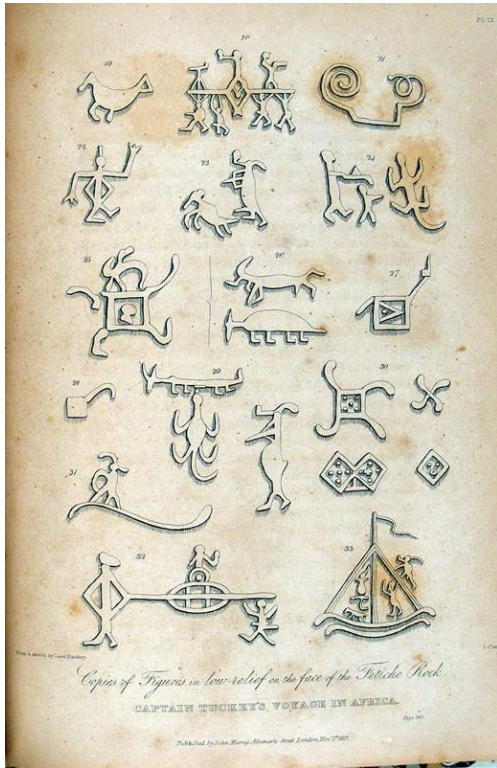 PL. IX.
19 20 21
22 23 24
25 26 27
28 29 30
31
32 33
From a sketch by Lieut. Hawkey.
Copies of Figures in low-relief on the face of the Fetiche Rock.
CAPTAIN TUCKEY'S VOYAGE IN AFRICA.
Page 382
Published by John Murray Albemarle Street London, Nov. 1817.